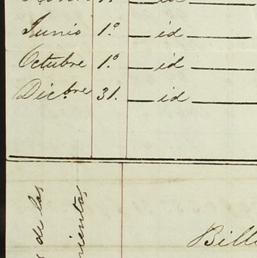 Junio 1.º — id —
Octubre 1.º — id —
Dic.bre 31. — id —
de las
Bill